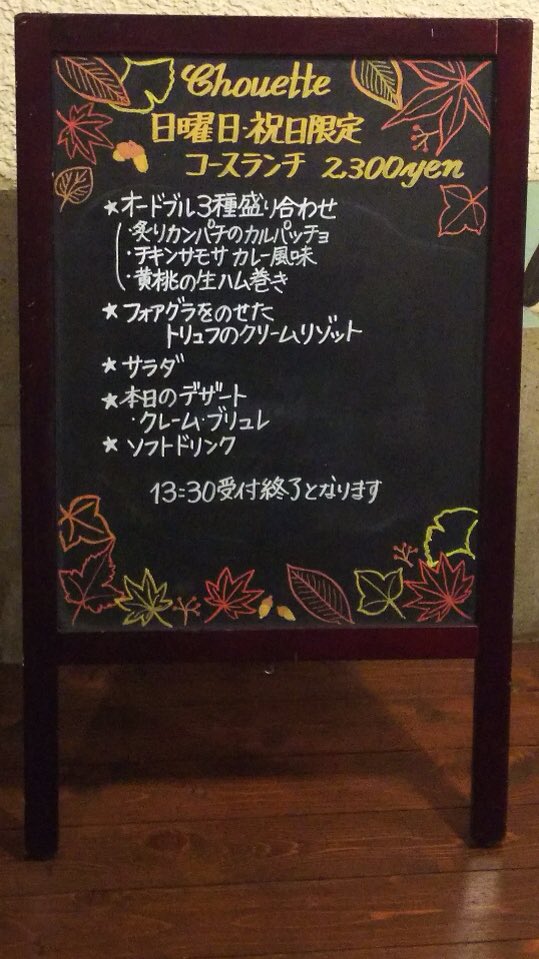 Chouette
日曜日・祝日限定
コースランチ 2,300yen
★オードブル3種盛り合わせ
・炙りカンパチのカルパッチョ
・チキンサモサ カレー風味
・黄桃の生ハム巻き
★フォアグラをのせた
トリュフのクリームリゾット
★サラダ
★本日のデザート
・クレーム・ブリュレ
★ソフトドリンク
13:30受付終了となります